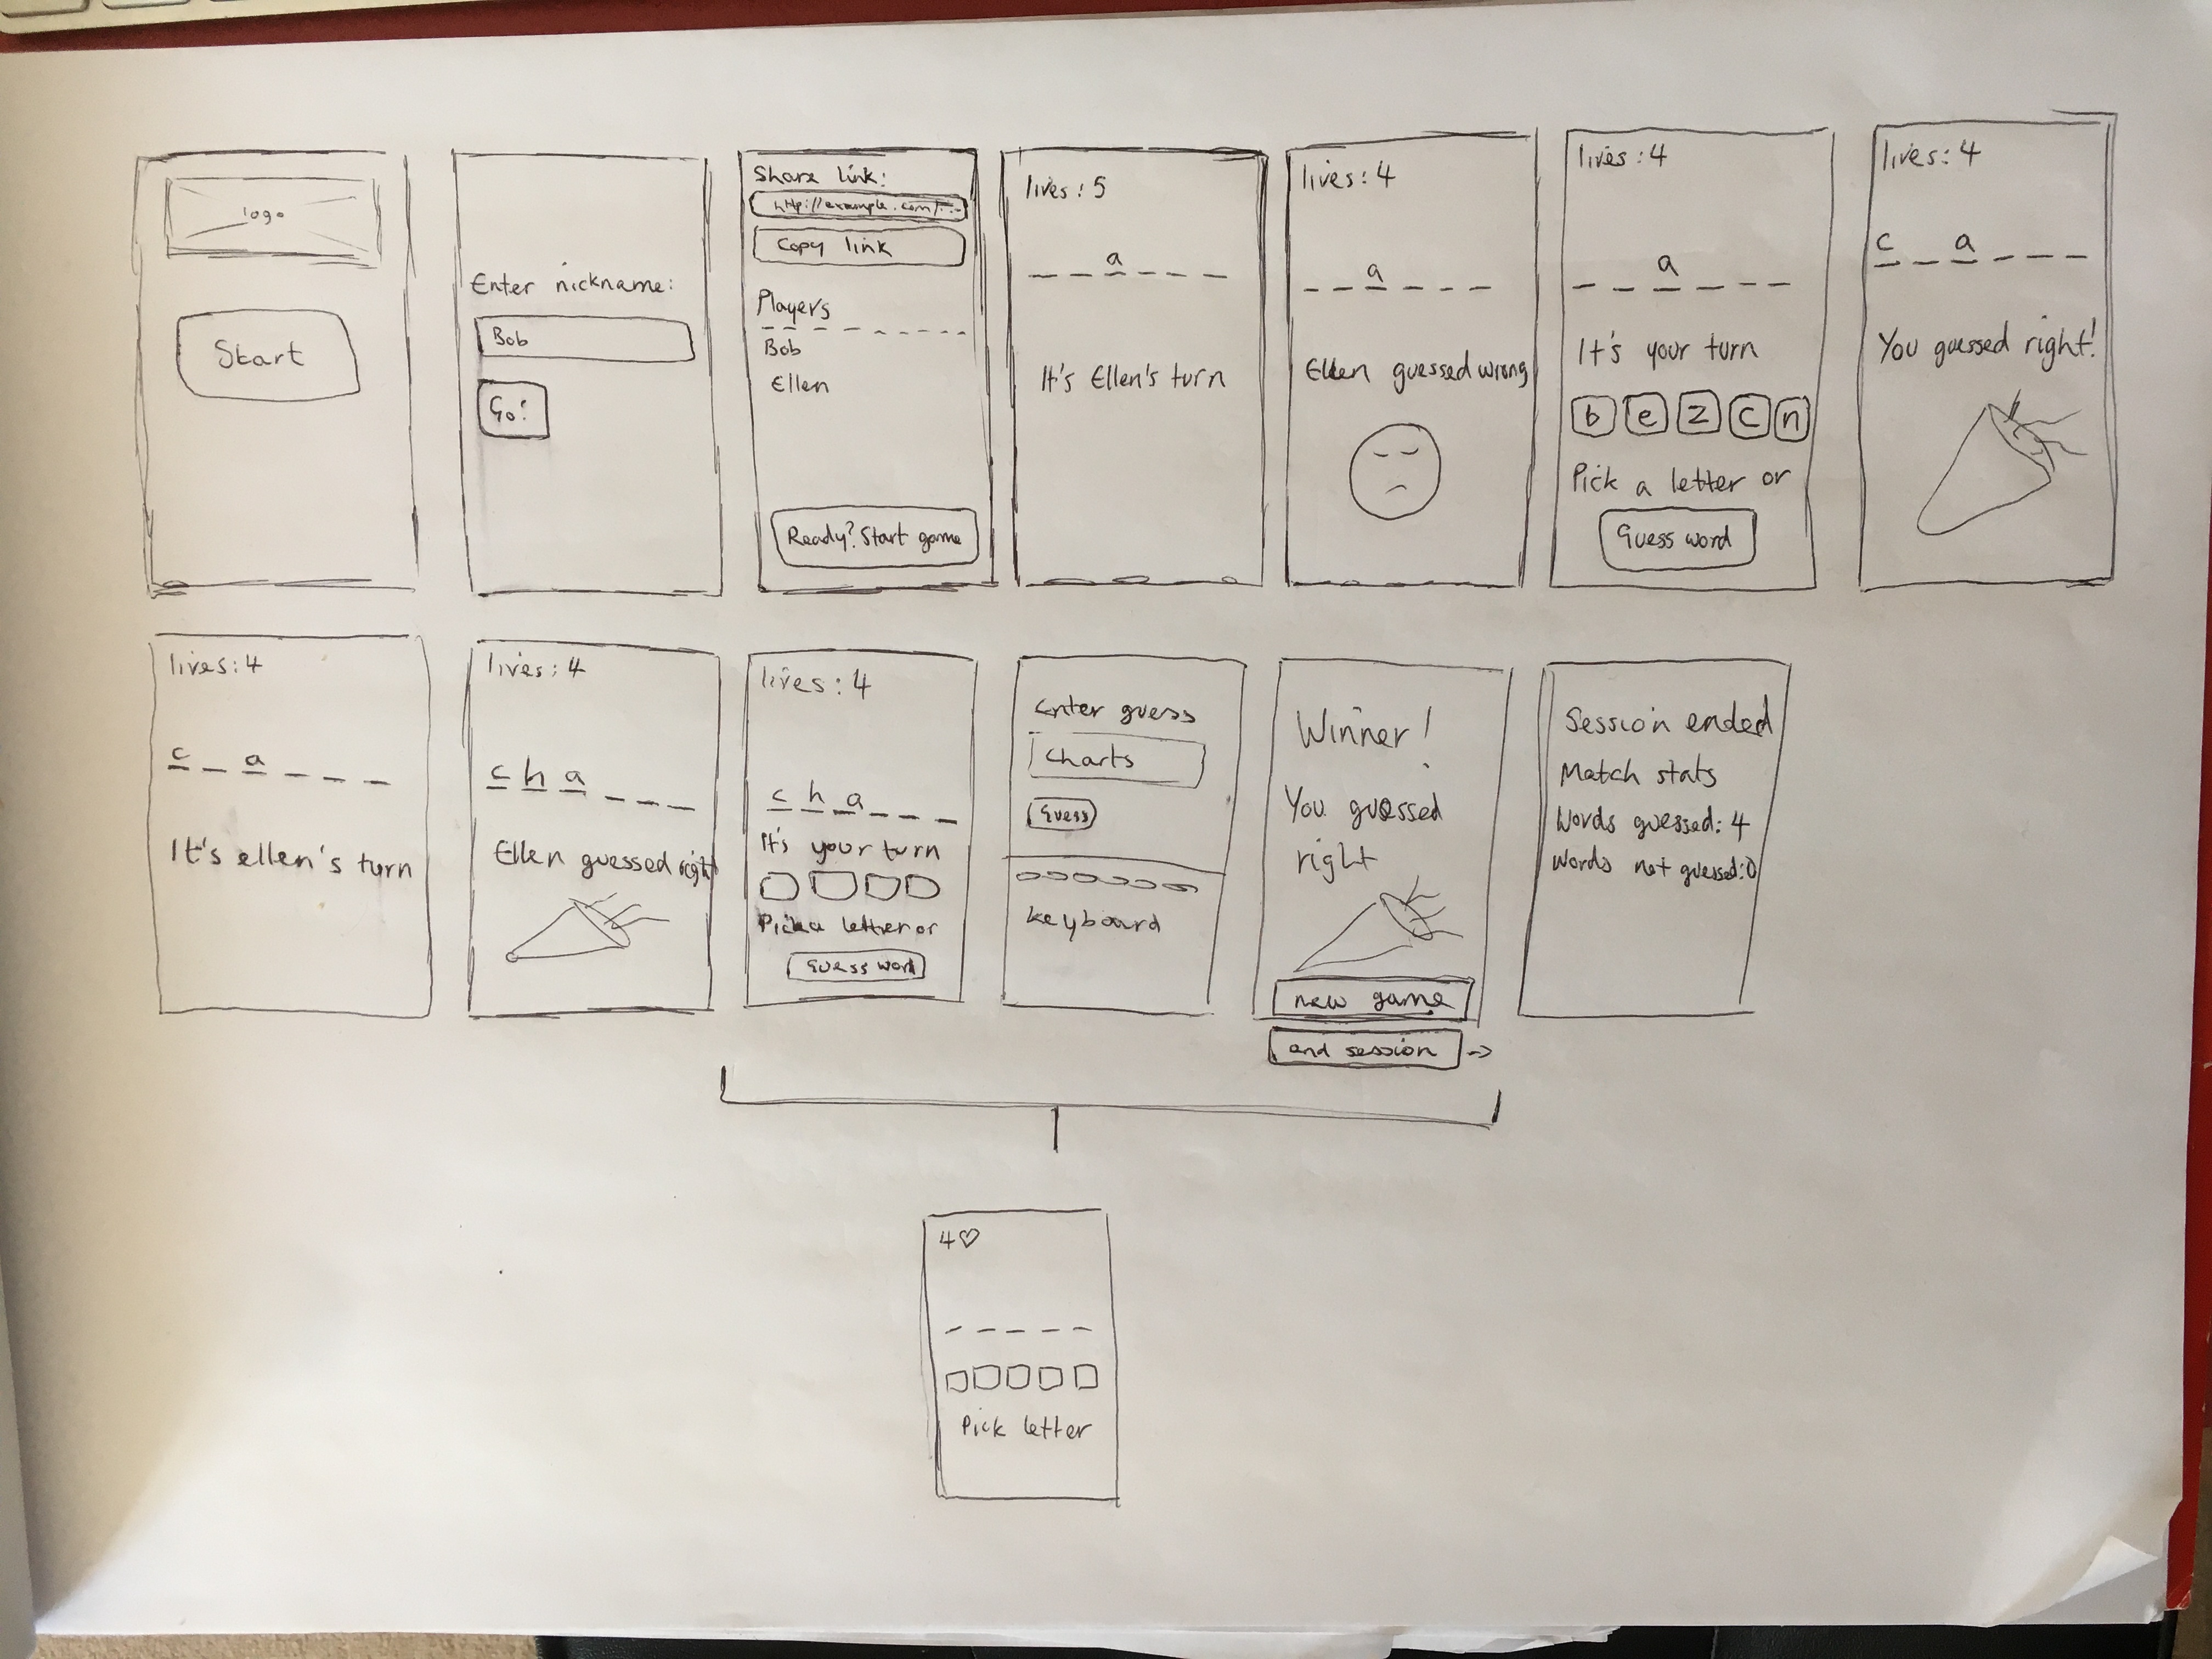 logo
Start
Enter nickname:
Bob
Go!
Share link:
http://example.com/...
Copy link
Players
Bob
Ellen
Ready? Start game
lives: 5
a
It's Ellen's turn
lives: 4
a
Ellen guessed wrong
lives: 4
a
It's your turn
b e z c n
Pick a letter or
Guess word
lives: 4
c a
You guessed right!
lives: 4
c a
It's ellen's turn
lives: 4
c h a
Ellen guessed right
lives: 4
c h a
It's your turn
Pick a letter or
Guess word
Enter guess
Charts
Guess
keyboard
Winner!
You guessed
right
new game
end session →
Session ended
Match stats
Words guessed: 4
Words not guessed: 0
4♡
Pick letter